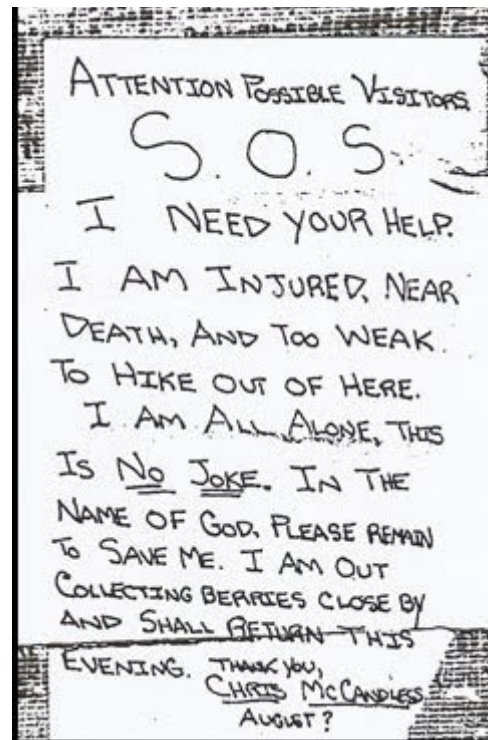 ATTENTION POSSIBLE VISITORS
S.O.S
I NEED YOUR HELP.
I AM INJURED, NEAR
DEATH, AND TOO WEAK
TO HIKE OUT OF HERE.
I AM ALL ALONE, THIS
IS NO JOKE. IN THE
NAME OF GOD, PLEASE REMAIN
TO SAVE ME. I AM OUT
COLLECTING BERRIES CLOSE BY
AND SHALL RETURN THIS
EVENING. THANK YOU,
CHRIS McCANDLESS
AUGUST ?